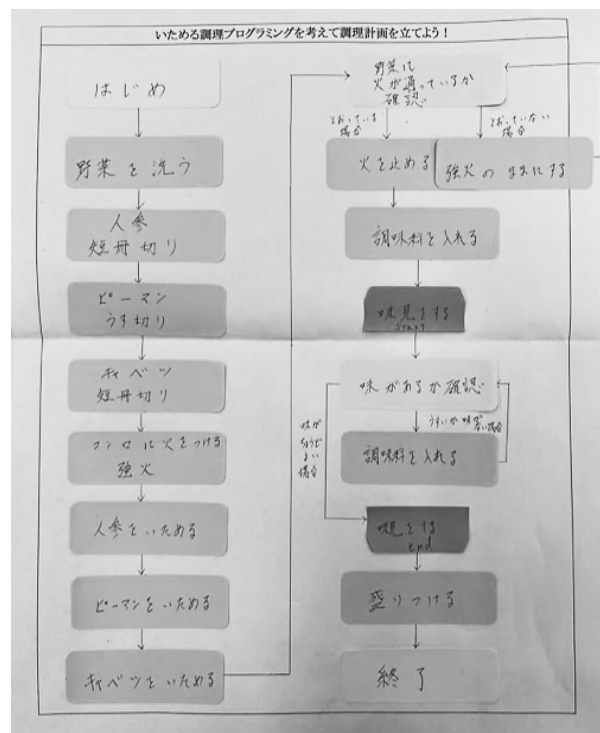 いためる調理プログラミングを考えて調理計画を立てよう！
はじめ
野菜を洗う
人参
短冊切り
ピーマン
うす切り
キャベツ
短冊切り
コンロに火をつける
強火
人参をいためる
ピーマンをいためる
キャベツをいためる
野菜に
火が通っているか
確認
とおっている
場合
とおっていない
場合
火を止める
強火のままにする
調味料を入れる
味見をする
start
味があるか確認
うすいか味が
ない場合
味が
ちょうど
よい
場合
調味料を入れる
味見をする
end
盛りつける
終了